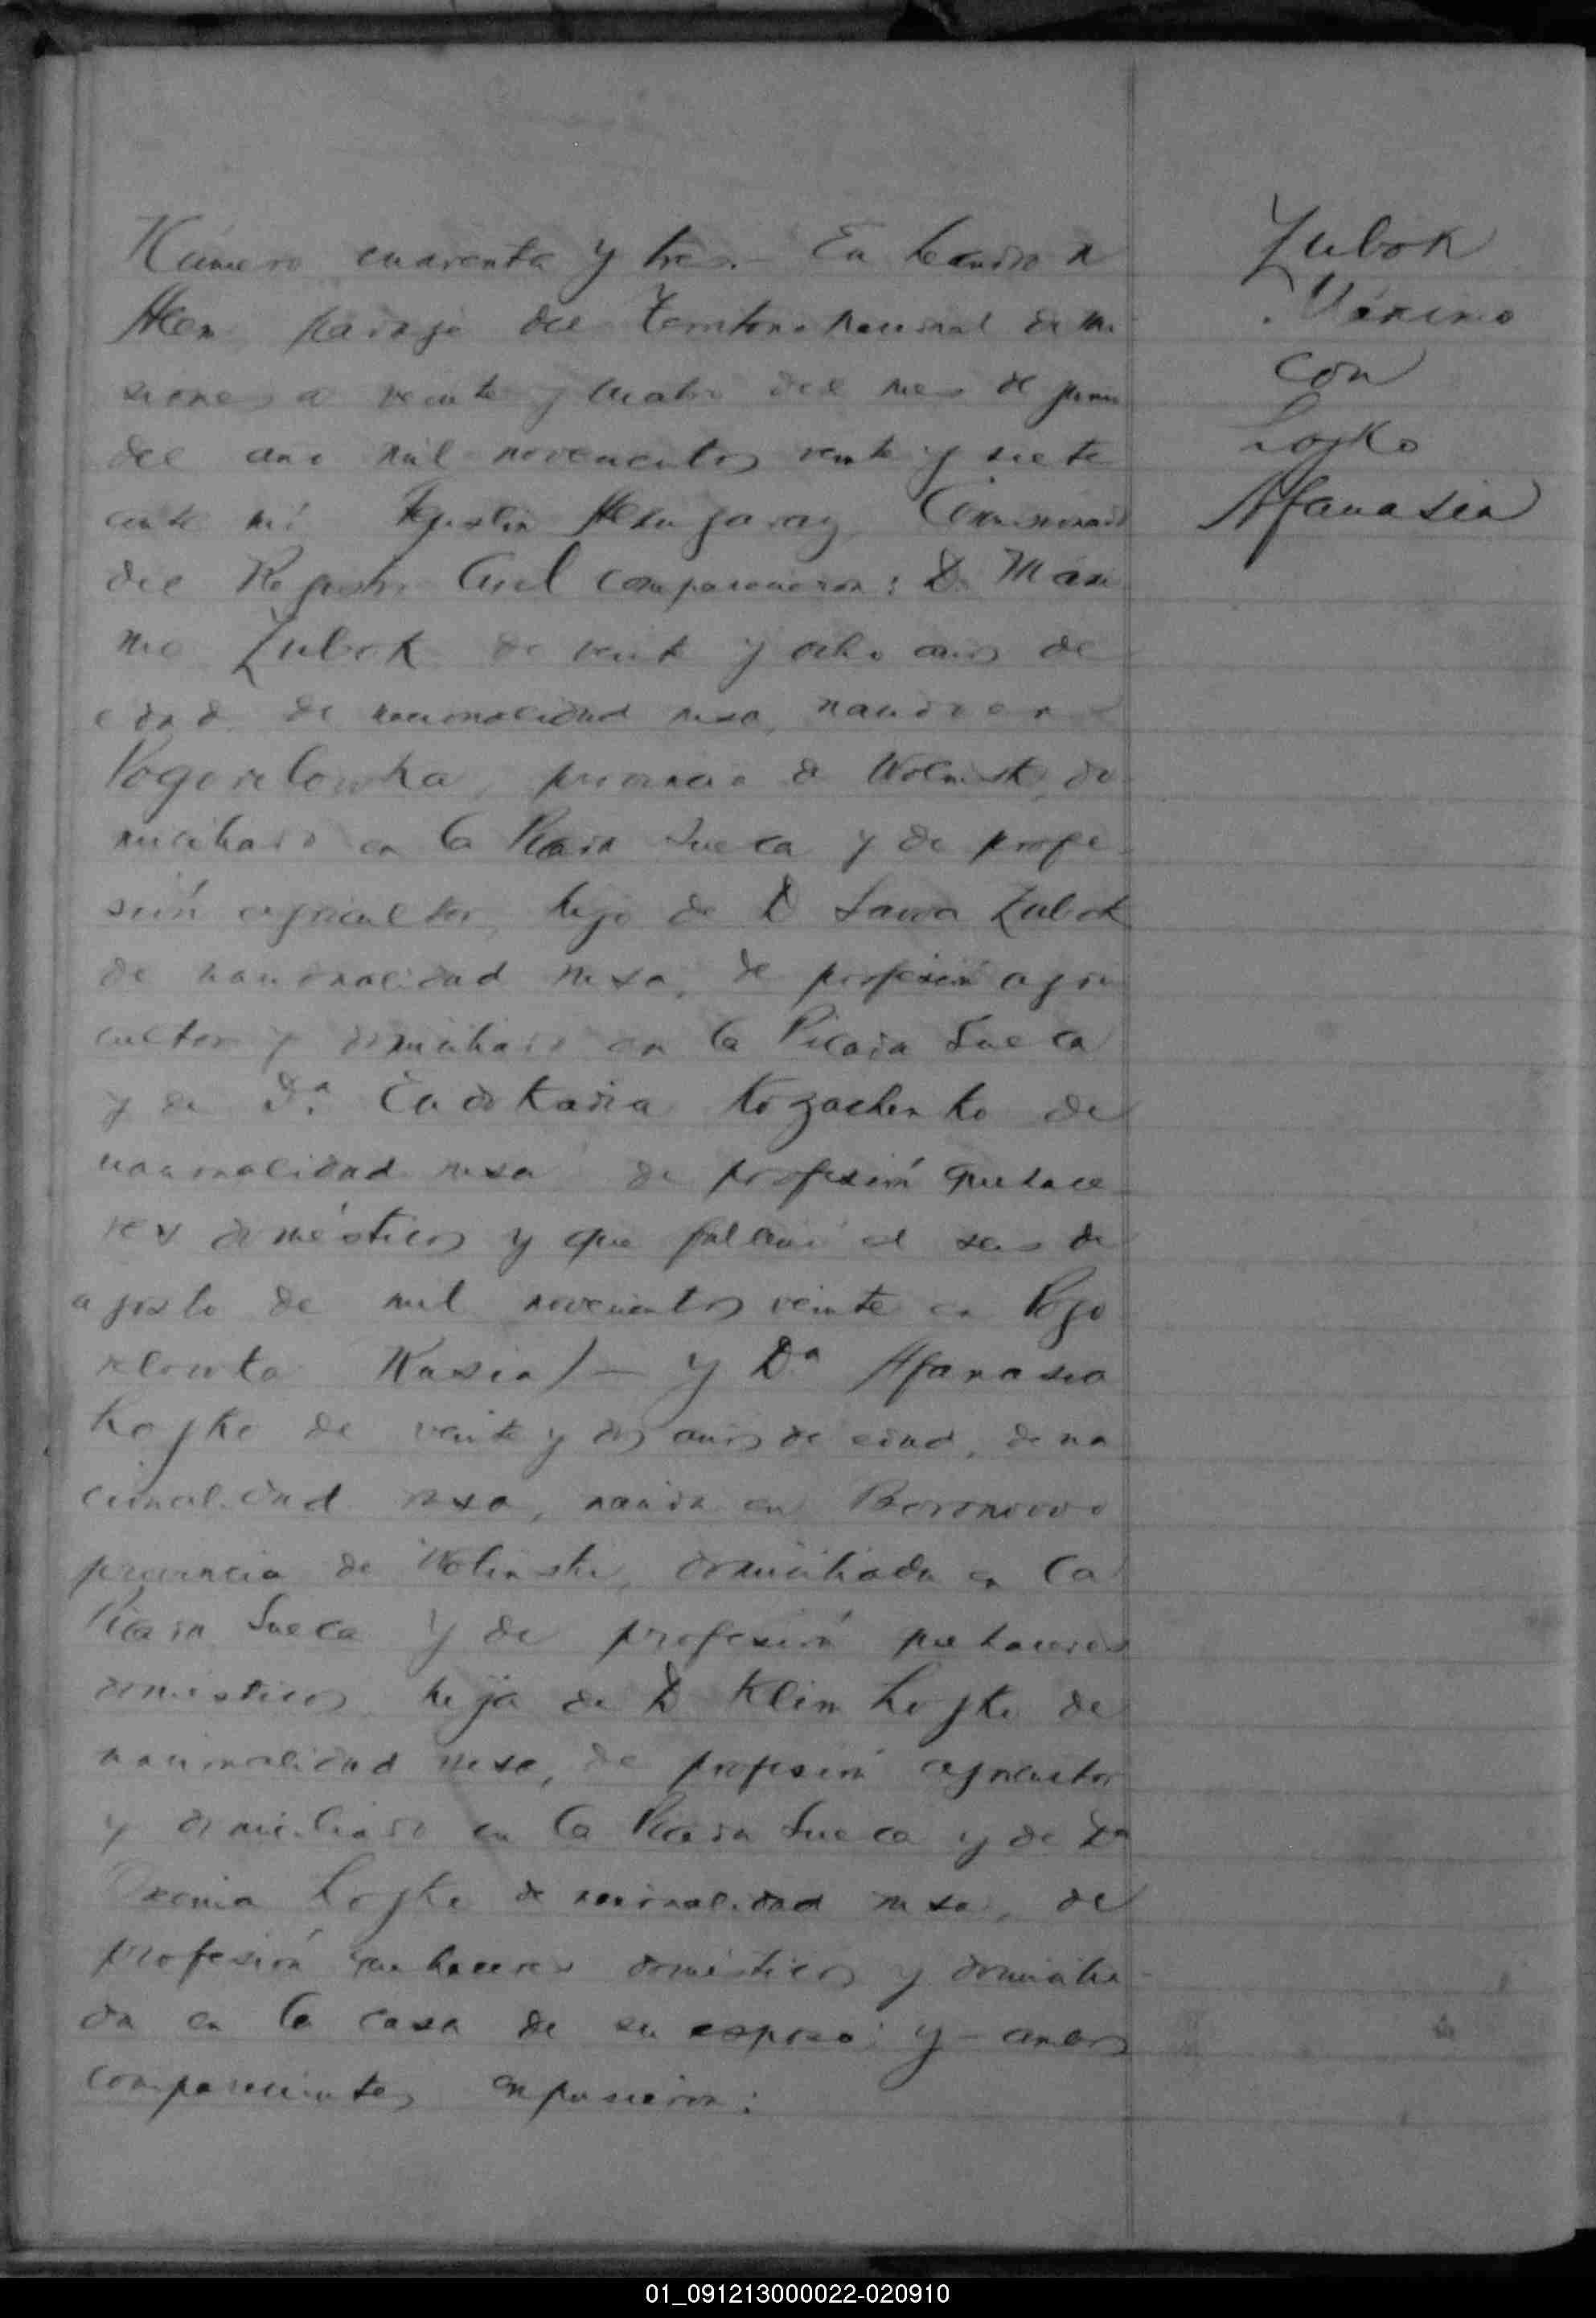 Número cuarenta y tres.- En Leandro N
Alem paraje del Territorio Nacional de Mi
siones a veinte y cuatro del mes de junio
del año mil novecientos veinte y siete
ante mí Agustín Comisionado
del Registro Civil comparecieron: Dn Máxi
mo Zubok de veinte y ocho años de
edad de nacionalidad rusa, nacido en
Pogorelowka, provincia de Wolinski, do
miciliado en la Picada Sueca y de profe-
sión agricultor, hijo de D Sawa Zubok
de nacionalidad rusa, de profesión agri
cultor y domiciliado en la Picada Sueca
y de Da. Kozachenko de
nacionalidad rusa de profesión quehace
res domésticos y que falleció el seis de
agosto de mil novecientos veinte en Pogo
relowka /— y Da Afanasia
Lojko de veinte y dos años de edad, de na
cionalidad rusa, nacida en
provincia de Wolinski, domiciliada en la
Picada Sueca y de profesión quehaceres
domésticos hija de D Klim Lojko de
nacionalidad rusa, de profesión agricultor
y domiciliado en la Picada Sueca y de Da
Oxenia Lojko de nacionalidad rusa, de
profesión quehaceres domésticos y domicilia-
da en la casa de su esposo: y - ambos
comparecientes expusieron:
Zubok
Máximo
con
Lojko
Afanasia
01_091213000022-020910